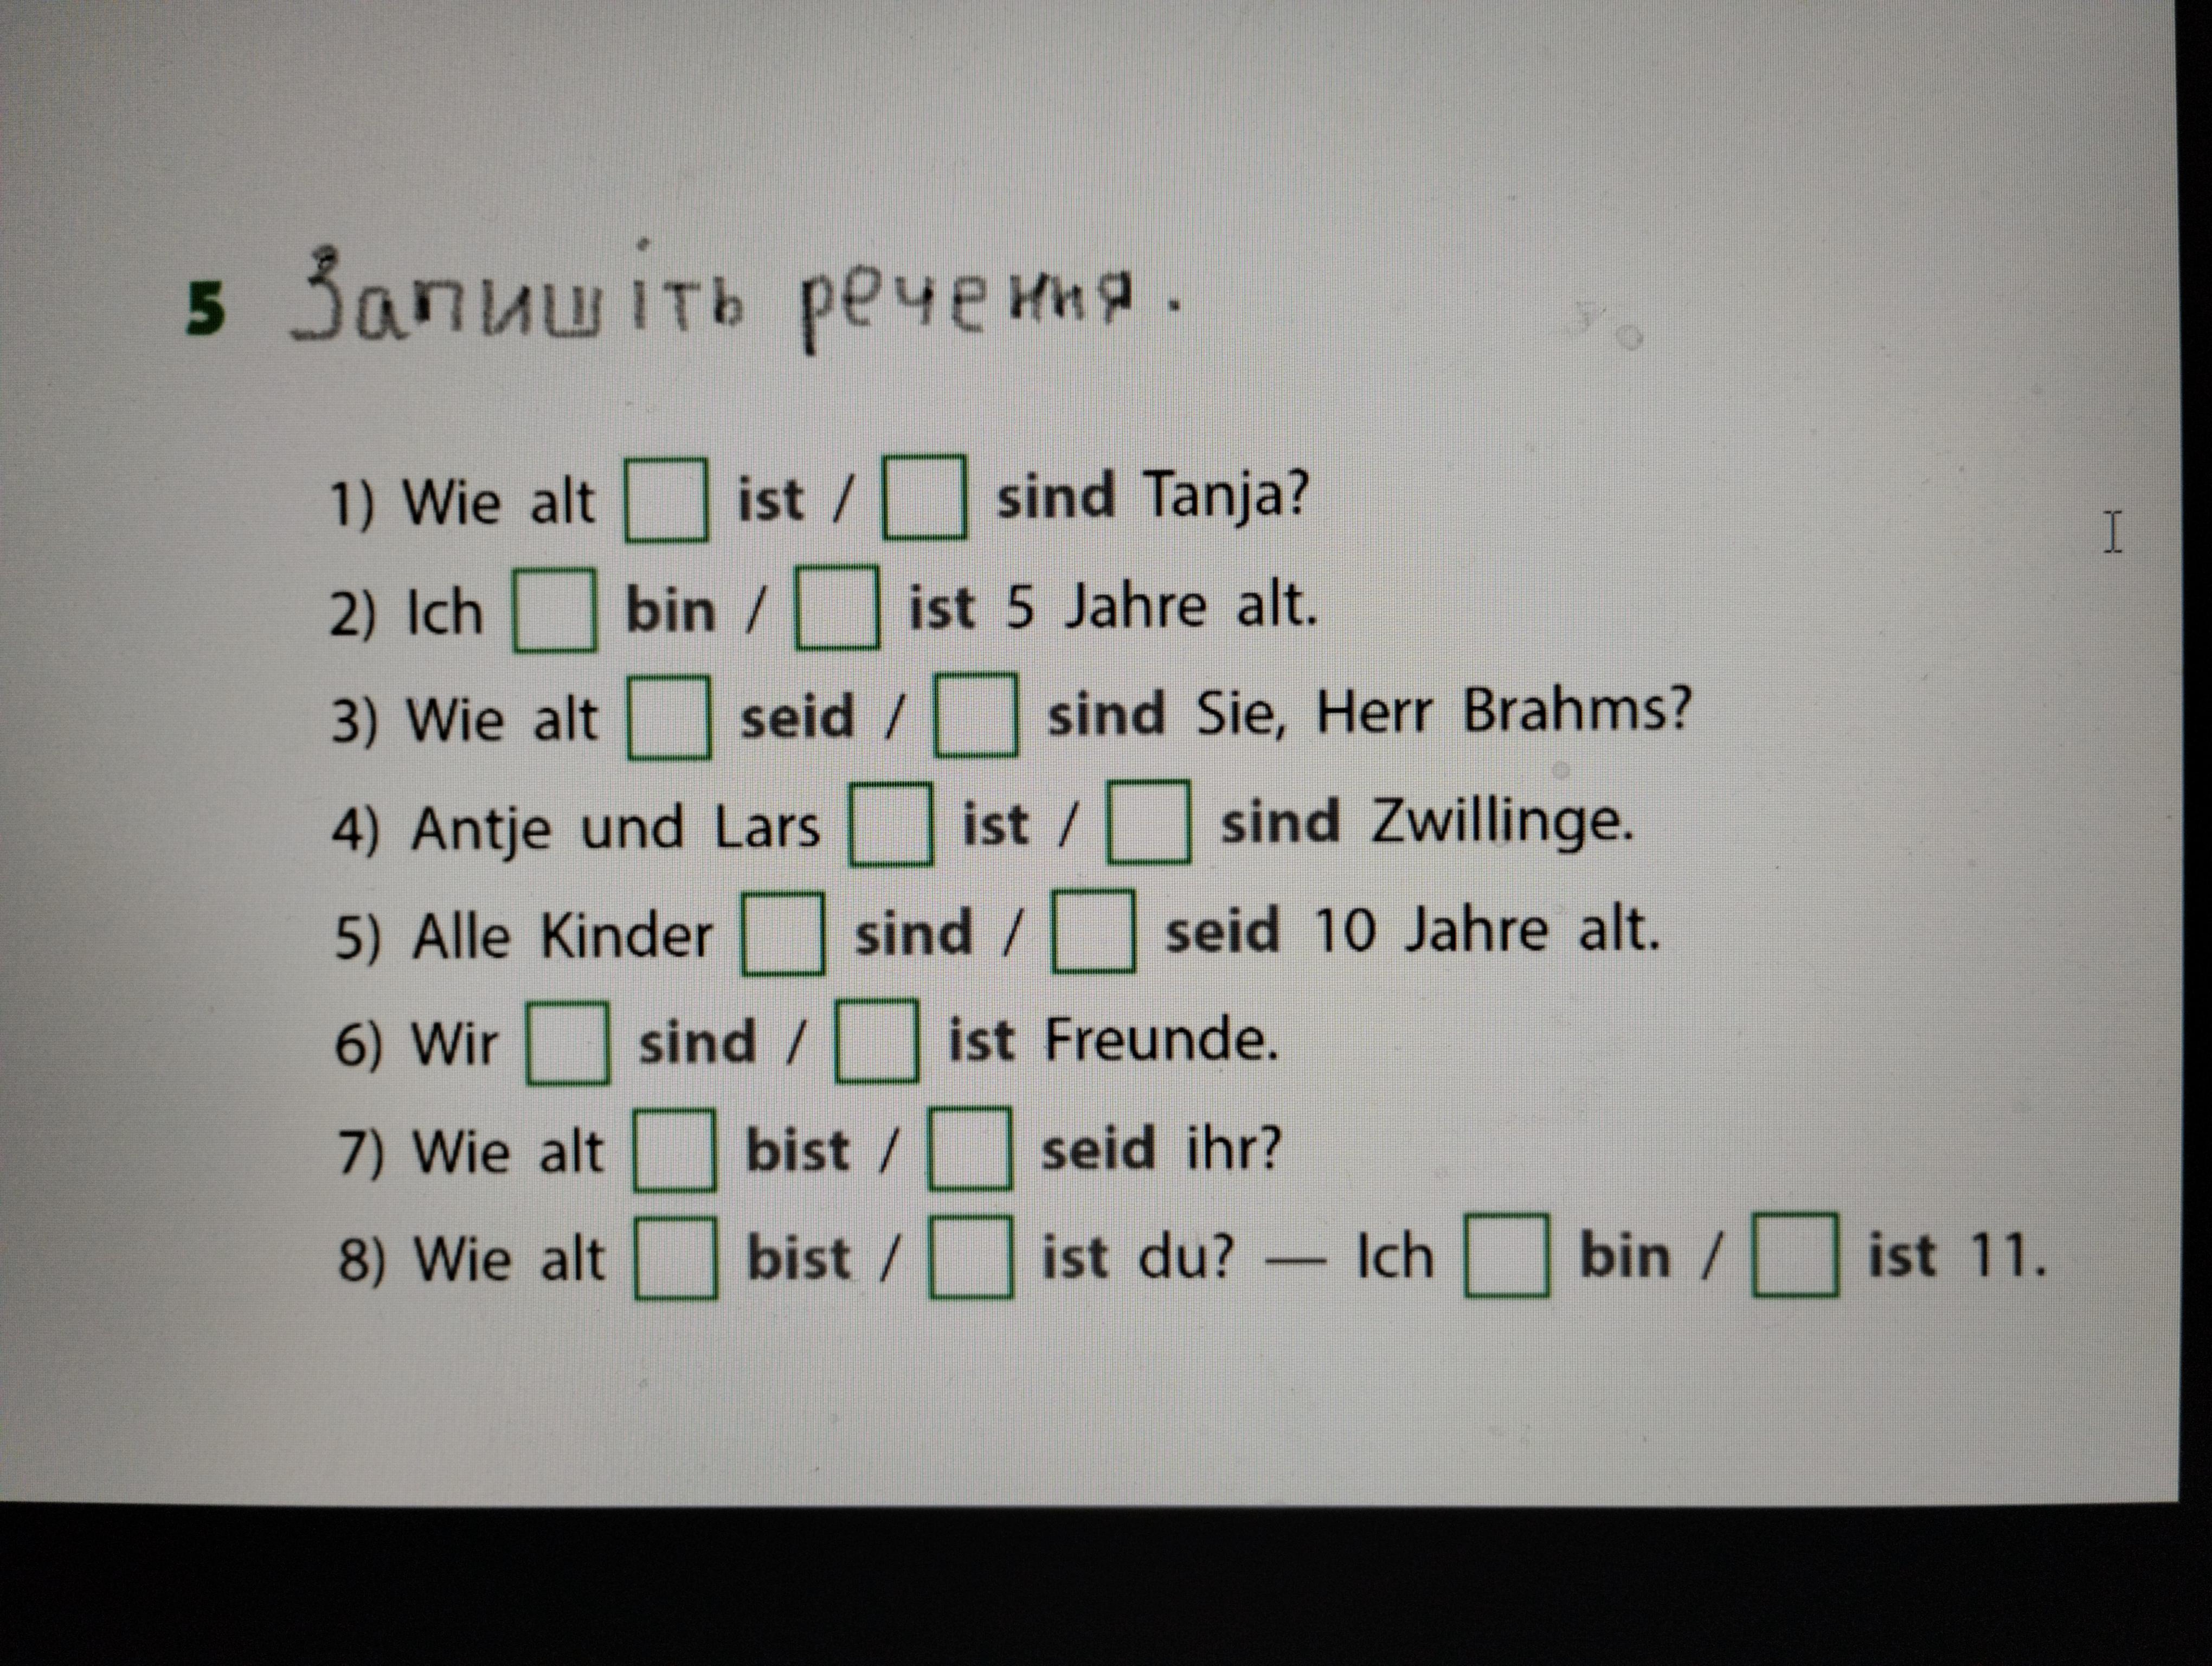 5 Запишіть речення.
1) Wie alt □ ist / □ sind Tanja?
2) Ich □ bin / □ ist 5 Jahre alt.
3) Wie alt □ seid / □ sind Sie, Herr Brahms?
4) Antje und Lars □ ist / □ sind Zwillinge.
5) Alle Kinder □ sind / □ seid 10 Jahre alt.
6) Wir □ sind / □ ist Freunde.
7) Wie alt □ bist / □ seid ihr?
8) Wie alt □ bist / □ ist du? — Ich □ bin / □ ist 11.